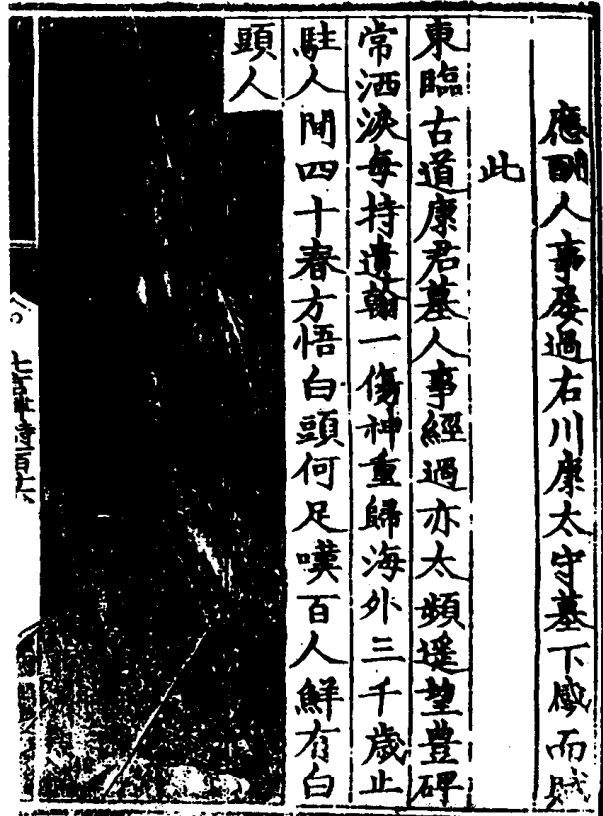 應酬人事屡過右川康太守墓下感而賦
此
東臨古道康君墓人事經過亦太頻遥望豊碑
常洒淚每持遺翰一傷神重歸海外三千歲止
駐人間四十春方悟白頭何足嘆百人鮮有白
頭人